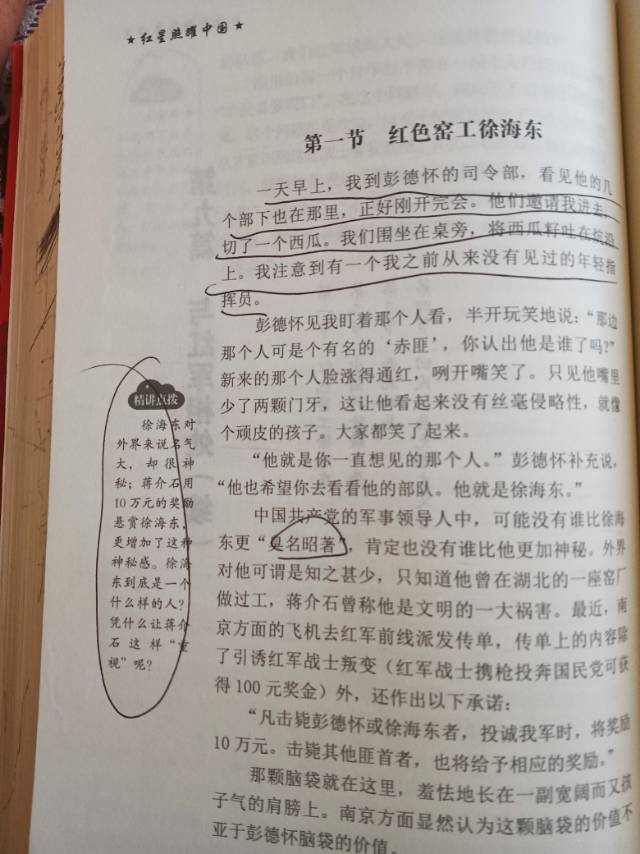 ★ 红星照耀中国 ★
第一节 红色窑工徐海东
一天早上，我到彭德怀的司令部，看见他的几
个部下也在那里，正好刚开完会。他们邀请我进去，
切了一个西瓜。我们围坐在桌旁，将西瓜籽吐在炕沿
上。我注意到有一个我之前从来没有见过的年轻指
挥员。
彭德怀见我盯着那个人看，半开玩笑地说：“那边
那个人可是个有名的‘赤匪’，你认出他是谁了吗？”
新来的那个人脸涨得通红，咧开嘴笑了。只见他嘴里
少了两颗门牙，这让他看起来没有丝毫侵略性，就像
个顽皮的孩子。大家都笑了起来。
“他就是你一直想见的那个人。”彭德怀补充说，
“他也希望你去看看他的部队。他就是徐海东。”
中国共产党的军事领导人中，可能没有谁比徐海
东更“臭名昭著”，肯定也没有谁比他更加神秘。外界
对他可谓是知之甚少，只知道他曾在湖北的一座窑厂
做过工，蒋介石曾称他是文明的一大祸害。最近，南
京方面的飞机去红军前线派发传单，传单上的内容除
了引诱红军战士叛变（红军战士携枪投奔国民党可获
得100元奖金）外，还作出以下承诺：
“凡击毙彭德怀或徐海东者，投诚我军时，将奖励
10万元。击毙其他匪首者，也将给予相应的奖励。”
那颗脑袋就在这里，羞怯地长在一副宽阔而又孩
子气的肩膀上。南京方面显然认为这颗脑袋的价值不
亚于彭德怀脑袋的价值。
精讲点拨
徐海东对
外界来说名气
大，却很神
秘；蒋介石用
10万元的奖励
悬赏徐海东，
更增加了这种
神秘感。徐海
东到底是一个
什么样的人？
凭什么让蒋介
石这样“重
视”呢？